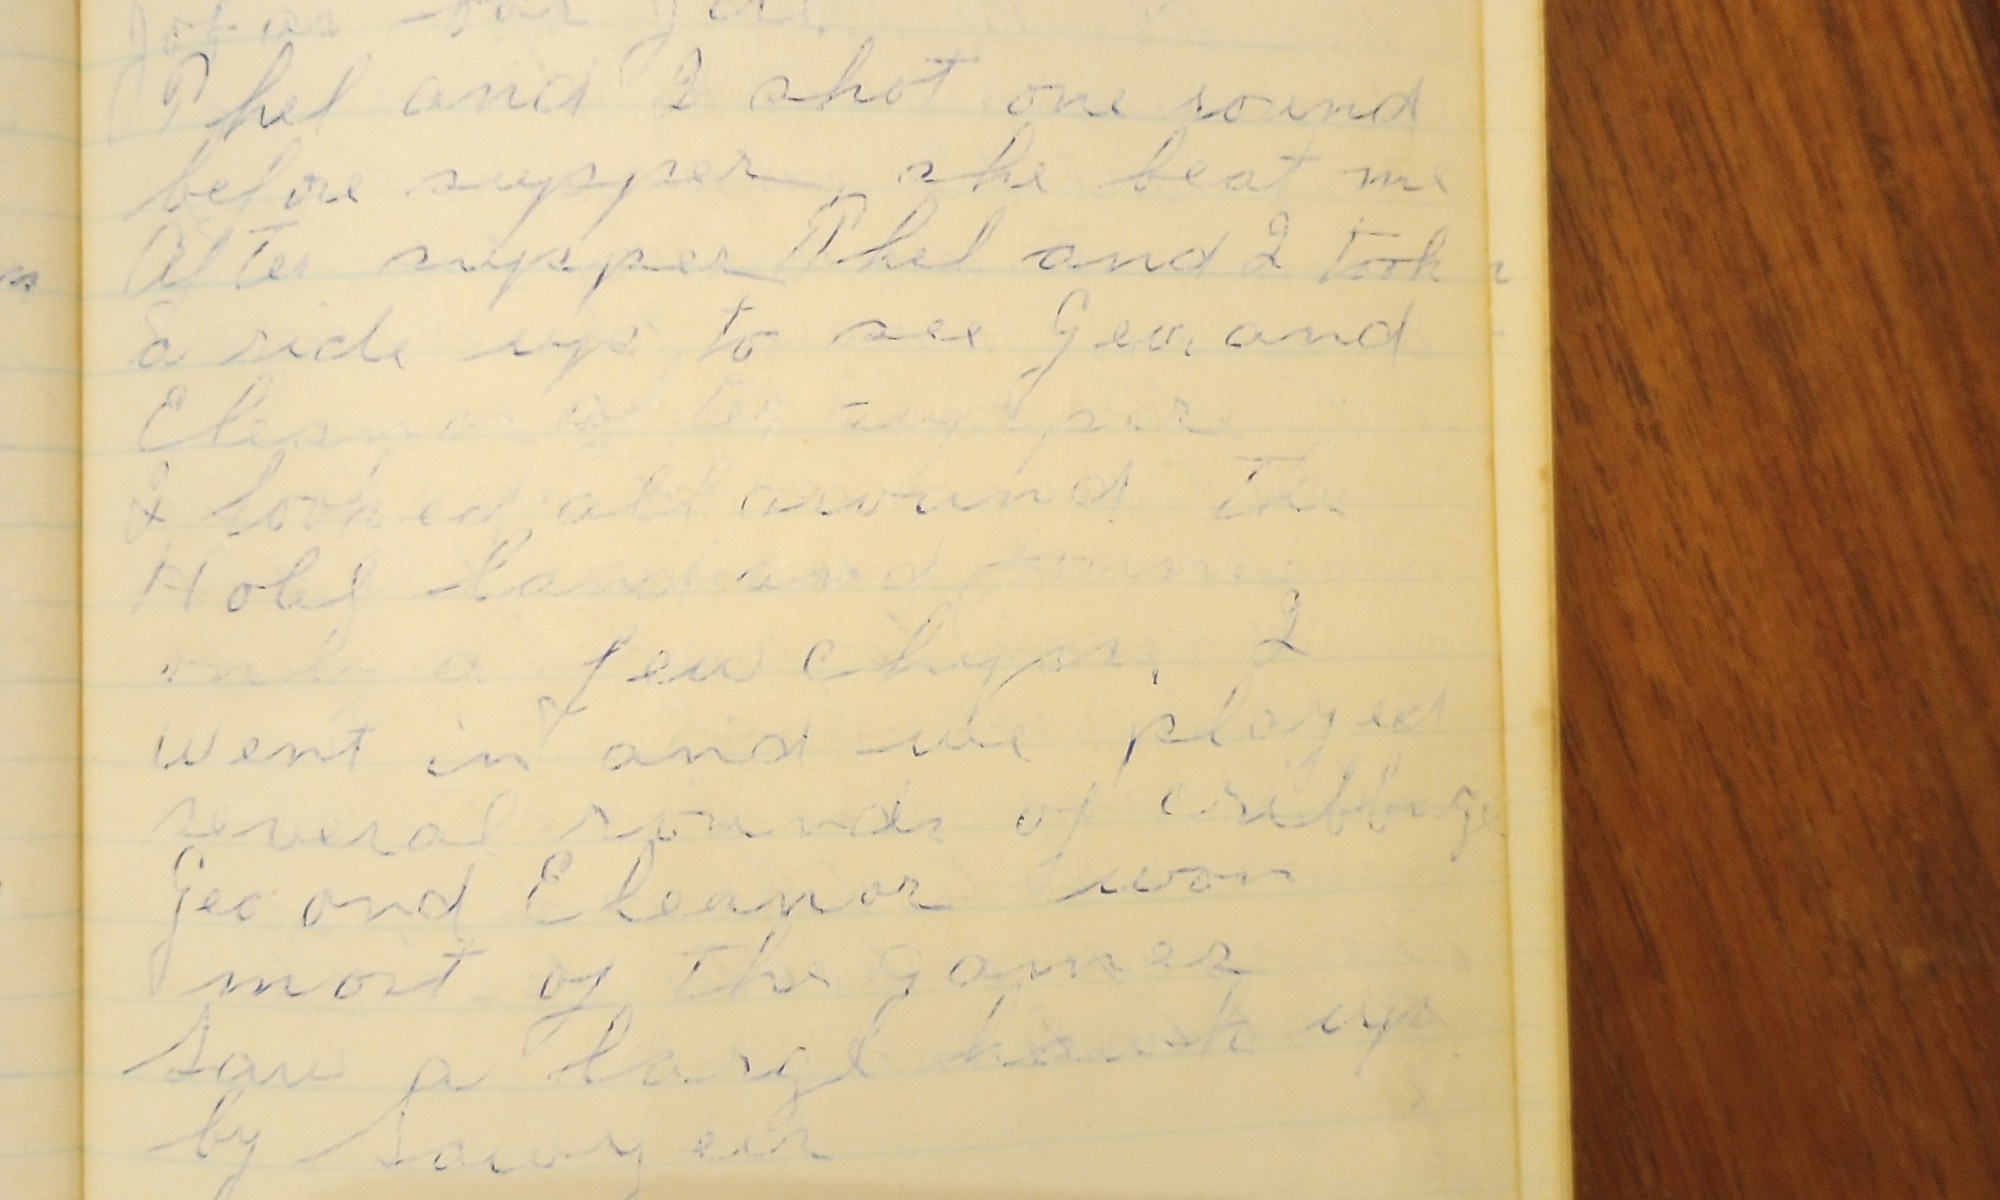 Phel and I shot one round
before supper, she beat me
After supper Phel and I took
a ride up to see Geo. and
Eleanor after supper
I looked all around the
Holy Land and
only a few chips, I
went in and we played
several rounds of cribbage
Geo and Eleanor won
most of the games
Saw a large hawk up
by Sawyers